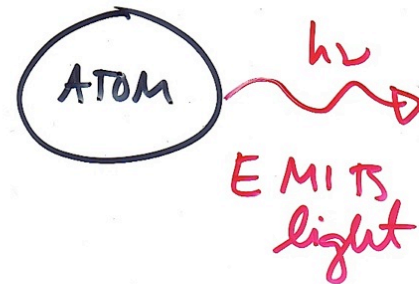 ATOM
hν
EMITS
light